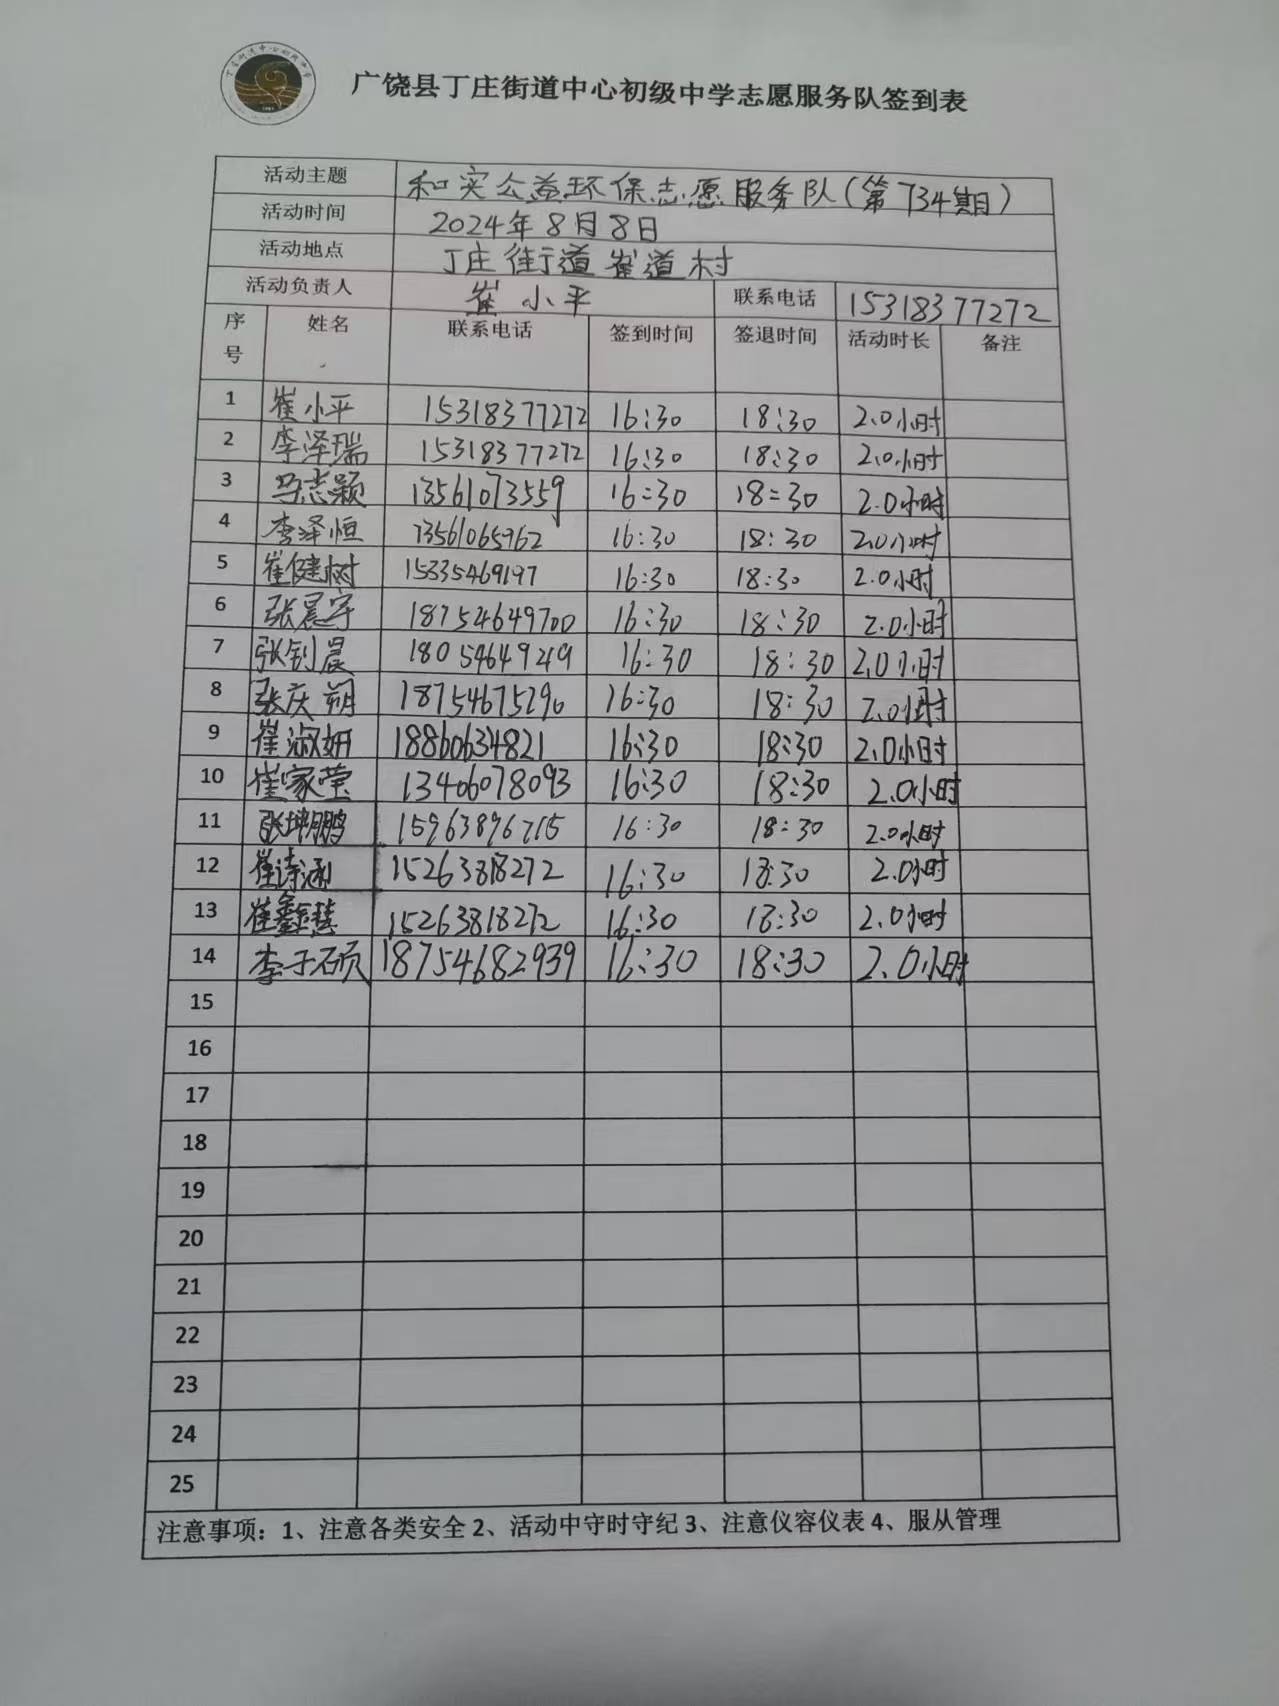 广饶县丁庄街道中心初级中学志愿服务队签到表
活动主题 和实公益环保志愿服务队(第734期)
活动时间 2024年8月8日
活动地点 丁庄街道崔道村
活动负责人 崔小平 联系电话 15318377272
序号 姓名 联系电话 签到时间 签退时间 活动时长 备注
1 崔小平 15318377272 16:30 18:30 2.0小时
2 李泽瑞 15318377272 16:30 18:30 2.0小时
3 马志颖 13561073559 16:30 18:30 2.0小时
4 李泽恒 13561065962 16:30 18:30 2.0小时
5 崔健树 15335469197 16:30 18:30 2.0小时
6 张晨宇 18754649700 16:30 18:30 2.0小时
7 张钊晨 18054649249 16:30 18:30 2.0小时
8 张庆朔 18754675290 16:30 18:30 2.0小时
9 崔淑妍 18860634821 16:30 18:30 2.0小时
10 崔家莹 13406078093 16:30 18:30 2.0小时
11 张坤鹏 15963896715 16:30 18:30 2.0小时
12 崔诗涵 15263818272 16:30 18:30 2.0小时
13 崔鑫慧 15263818272 16:30 18:30 2.0小时
14 李子硕 18754682939 16:30 18:30 2.0小时
15
16
17
18
19
20
21
22
23
24
25
注意事项：1、注意各类安全 2、活动中守时守纪 3、注意仪容仪表 4、服从管理